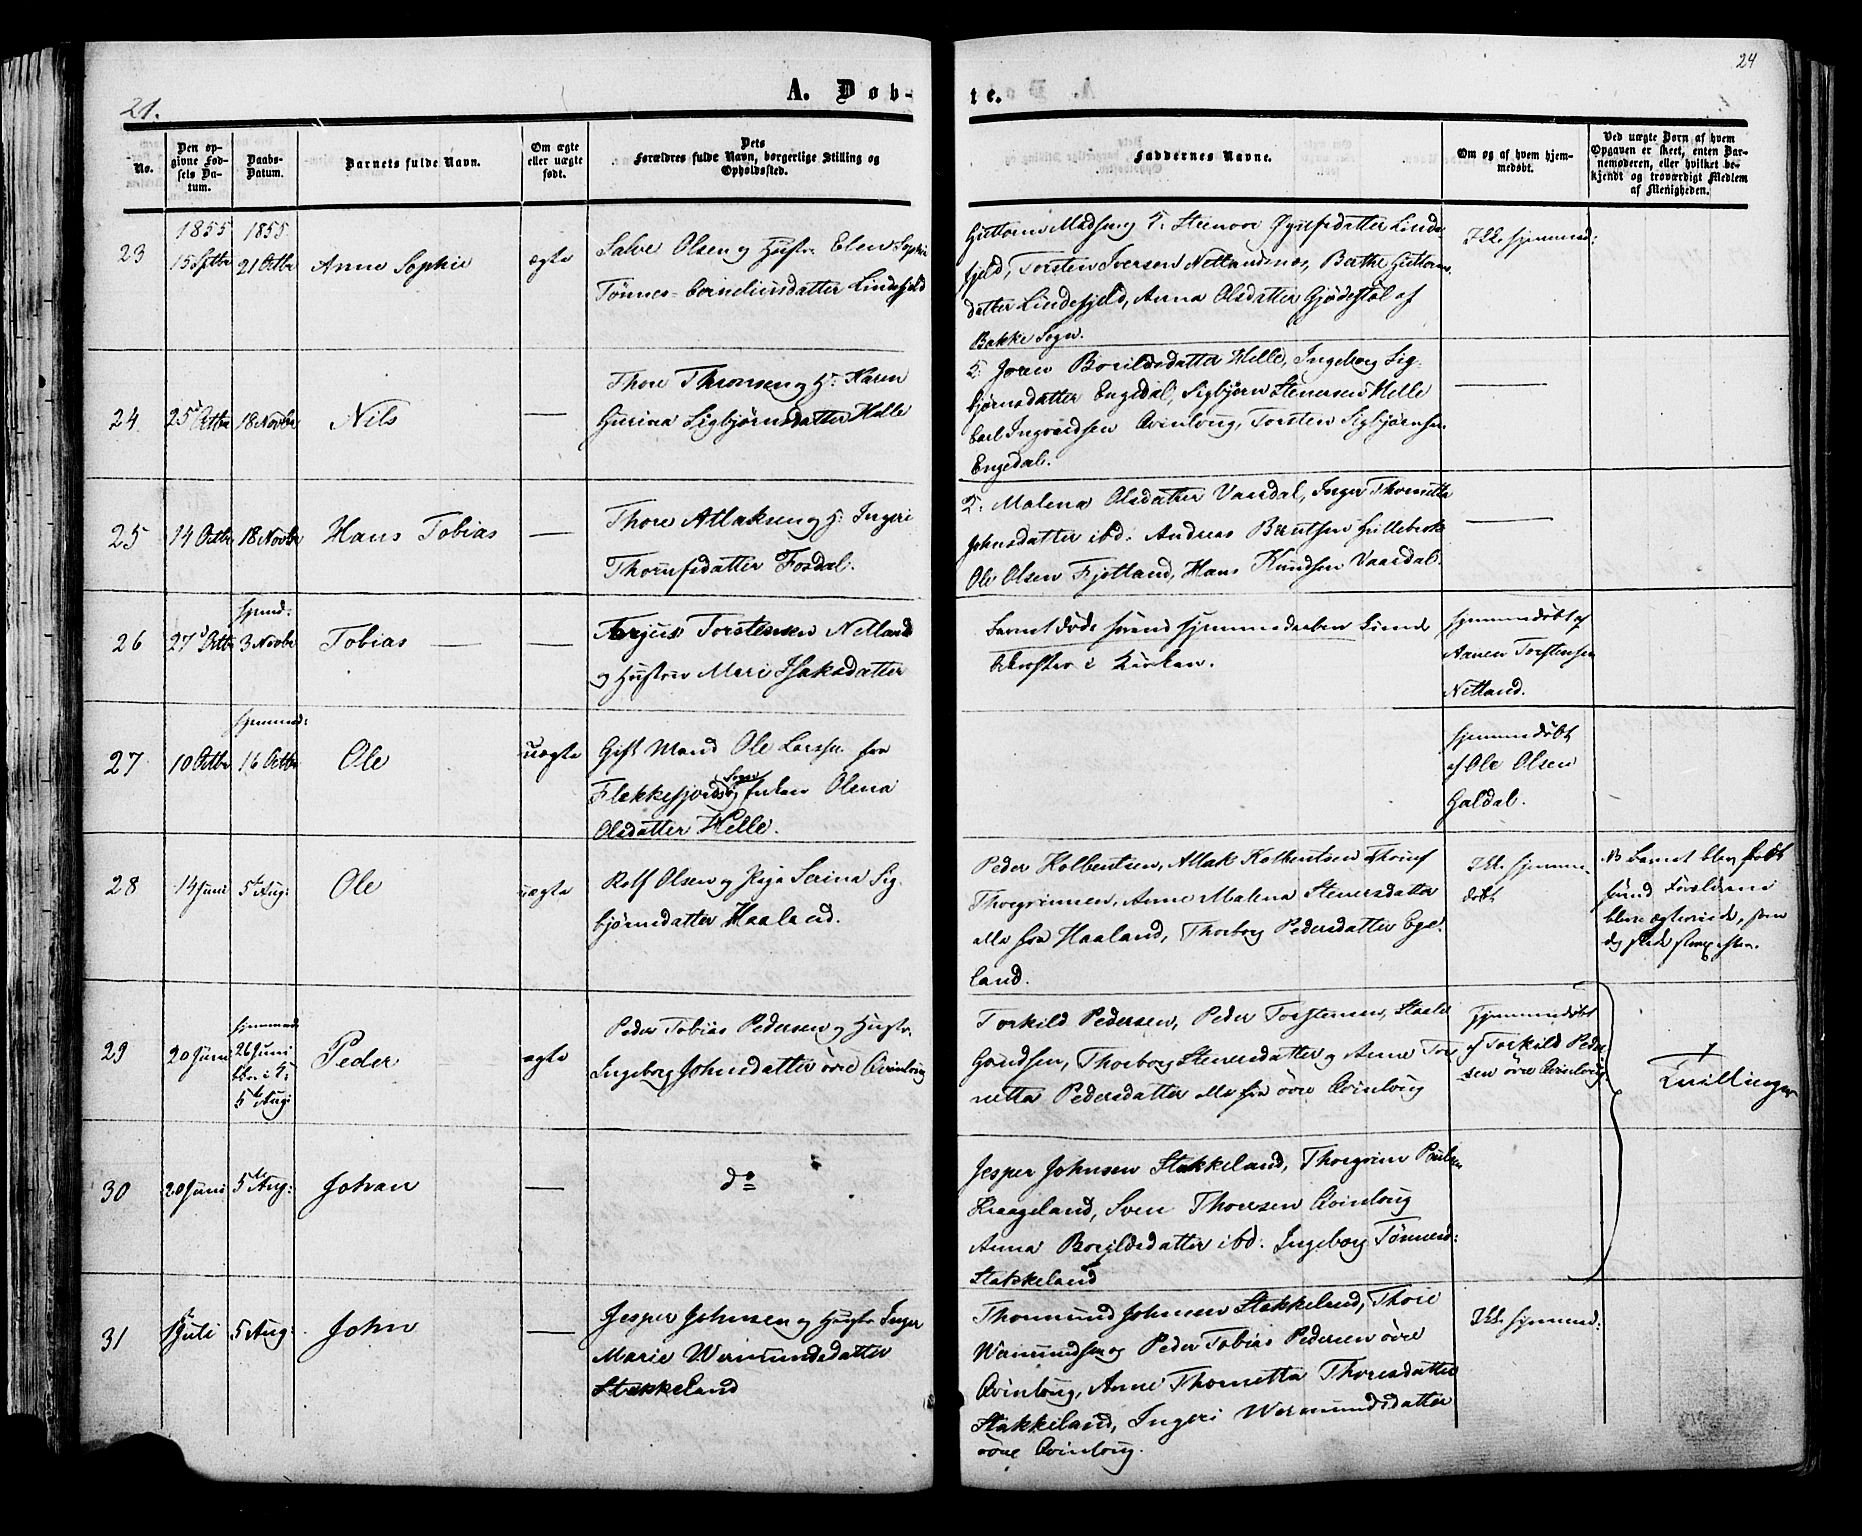 24
21.
A. Døb-
te.
No.
Den op-
givne Fød-
sels Da-
tum.
Daabs-
Datum.
Barnets fulde Navn.
Om ægte
eller uægte
født.
Dets
Forældres fulde Navn, borgerlige Stilling og
Opholdssted.
Faddernes Navne.
Om og af hvem hjem-
medøbt.
Ved uægte Børn af hvem
Opgaven er skeet, enten Bar-
nemoderen, eller hvilket be-
kjendt og troværdigt Medlem
af Menigheden.
23
1855
15 Septbr
1855
21 Octbr
Anne Sophie
ægte
Salve Olsen og Hustr. Elen Sophie
Tønnes-Corneliusdatter Lindefjeld
Guttorm Madsen og H. Steenvor Linde-
fjeld, Torsten Iversen Netlandsnes, Berthe Guttorms
datter Lindefjeld, Anna Olsdatter Gjødestøl af
Bakke Sogn.
Ikke hjemmed:
24
25 Octbr
18 Novbr
Nils
—
Thore Thronsen og H: Karen
Gurina Sigbjørnsdatter Helle
Joren Borildsdatter Helle, Ingeborg Sig-
bjørnsdatter Engedal, Sigbjørn Stenersen Helle
Carl Ingvardsen Qvinloug, Torsten Sigbjørnsen
Engedal.
—
25
14 Octbr
18 Novbr
Hans Tobias
—
Thore Atlaksen og H: Ingeri
Thorufsdatter Fosdal.
Malena Olsdatter Vaasdal, Inger Thometta
Johnsdatter ibd: Andreas Berntsen
Ole Olsen Fjotland, Hans Knudsen Vaasdal.
—
26
27 Octbr
hjemd:
3 Novbr
Tobias
—
Tarjus Torstensen Netland
og Hustru Mari Isaksdatter
Barnet døde førend Hjemmedaaben kunde
bekræftes i Kirken.
hjemmedøbt af
Torstensen
Netland.
27
10 Octbr
hjemmed:
16 Octbr
Ole
uægte
Gift Mand Ole Larsen fra
Flekkefjords Sogn og Enken Olena
Olsdatter Helle.
hjemmedøbt
af Ole Olsen
Galdal.
28
14 Juni
5te Aug:
Ole
uægte
Rolf Olsen og Pige Serina Sig-
bjørnsdatter Haaland.
Peder Kolbentsen, Atlak Kolbentsen,
Thorgrimsen, Anne Malena Stenersdatter
alle fra Haaland, Thorborg Pedersdatter Ege-
land.
Ikke hjemme-
døbt
NB Barnet blev født
førend Forældrene
bleve ægteviede, som
dog skede strax efter.
29
20 Juni
hjemmed:
26 Juni
5te Aug:
Peder
ægte
Peder Tobias Pedersen og Hustr.
Ingeborg Johnsdatter øvre Qvinloug
Torkild Pedersen, Peder Torstensen, Staale
Gundsen, Thorborg Stenersdatter og Anne Tor-
netta Pedersdatter alle fra øvre Qvinloug
Hjemmedøbt
af Torkild Peder-
sen øvre Qvinloug.
Tvillinger
30
20 Juni
5te Aug:
Johan
—
do
Jesper Johnsen Stakkeland, Thorgrim Paulsen
Kraageland, Sven Thorsen Qvinloug
Anna Borildsdatter ibd. Ingeborg Tønnesd:
Stakkeland
31
1 Juli
5 Aug:
John
—
Jesper Johnsen og Hustr. Inger
Marie Wermundsdatter
Stakkeland
Thormund Johnsen Stakkeland, Thore
Wermundsen og Peder Tobias Pedersen øvre
Qvinloug, Anne Thometta Thoresdatter
Stakkeland, Ingeri Wermundsdatter
øvre Qvinloug.
Ikke hjemmed: